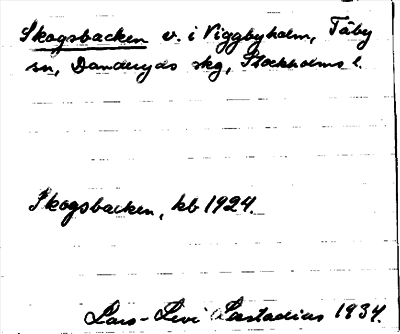 Skogsbacken v. i Viggbyholm, Täby
sn, Danderyds skg, Stockholms l.
Skogsbacken, kb 1924.
Lars-Levi Læstadius 1934.